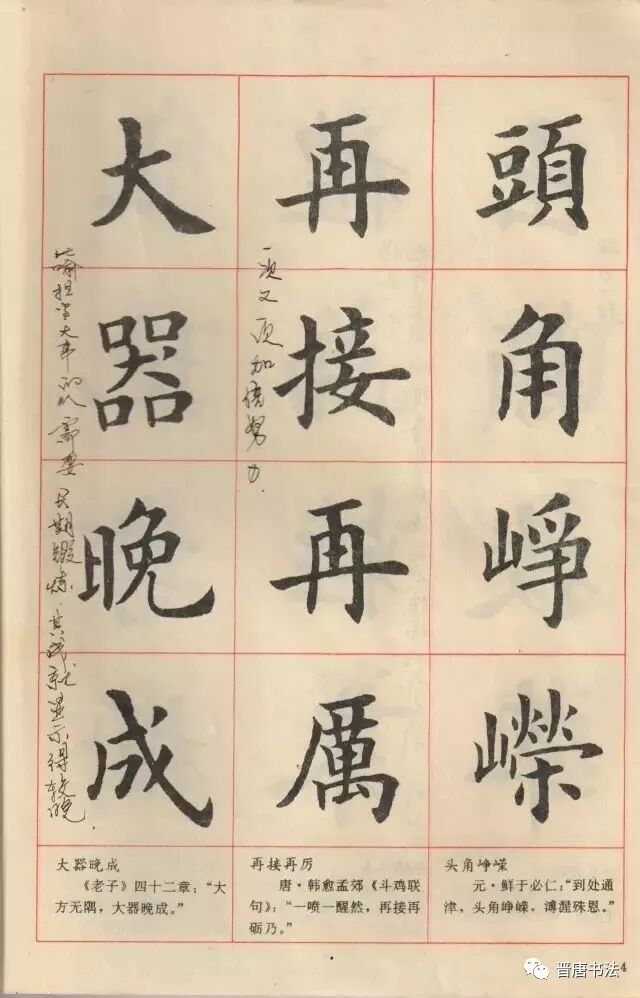 頭角崢嶸
再接再厲
一次又一次加倍努力.
大器晚成
比喻担当大事的人需要长期锻炼.其成就显示得较晚.
头角峥嵘
元·鲜于必仁:“到处通
津,头角峥嵘,溥渥殊恩。”
再接再厉
唐·韩愈孟郊《斗鸡联
句》:“一喷一醒然,再接再
砺乃。”
大器晚成
《老子》四十二章:“大
方无隅,大器晚成。”
4
晋唐书法